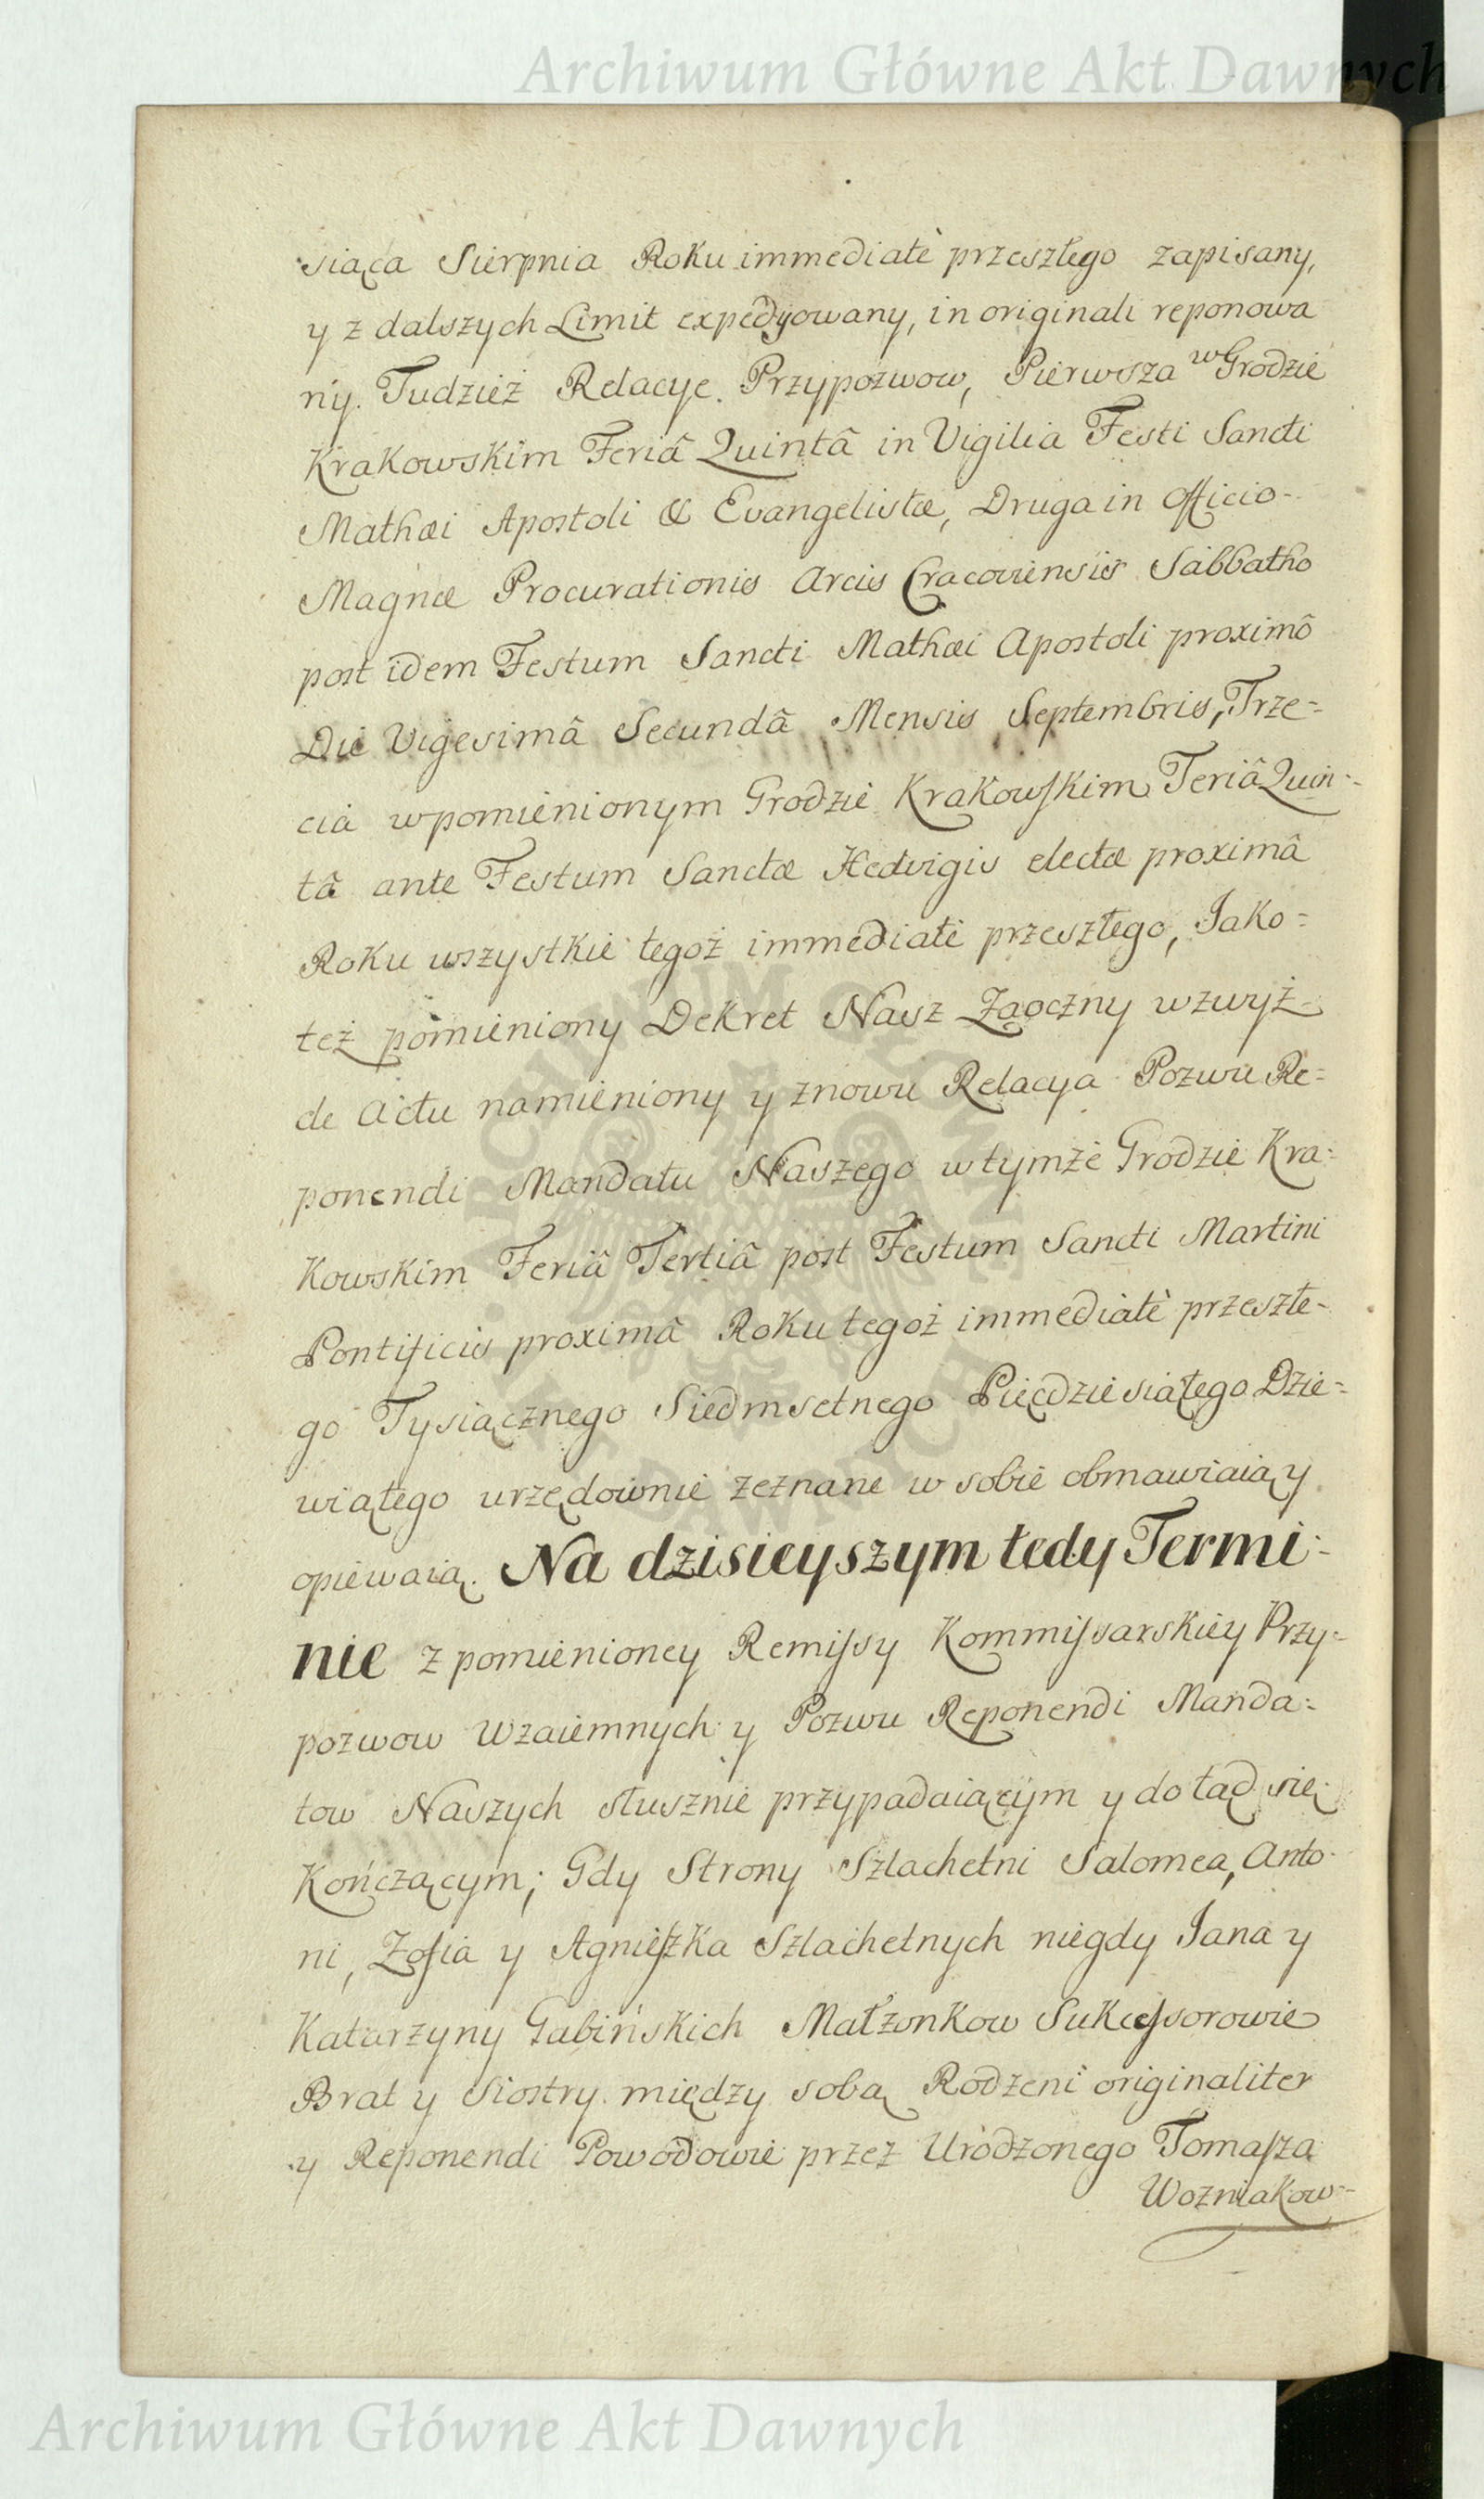 Archiwum Główne Akt Dawnych
siąca Sierpnia Roku immediatè przeszłego zapisany,
y z dalszych Limit expedyowany, in originali reponowa
ny. Tudzież Relacye Przypozwow, Pierwsza w Grodzie
Krakowskim Feriâ Quintâ in Vigilia Festi Sancti
Mathæi Apostoli & Evangelistæ, Druga in Officio-
Magnæ Procurationis Arcis Cracoviensis Sabbatho
post idem Festum Sancti Mathæi Apostoli proximô
Die Vigesimâ Secundâ Mensis Septembris, Trze=
cia w pomienionym Grodzie Krakowskim Feriâ Quin=
tâ ante Festum Sanctæ Hedvigis electæ proximâ
Roku wszystkie tegoż immediatè przeszłego, Jako=
też pomieniony Dekret Nasz Zaoczny wzwyż-
de Actu namieniony y znowu Relacya Pozwu Re=
ponendi Mandatu Naszego w tymże Grodzie Kra=
kowskim Feriâ Tertiâ post Festum Sancti Martini
Pontificis proximâ Roku tegoż immediatè przeszłe-
go Tysiącznego Siedmsetnego Pięcdziesiątego Dzie=
wiątego urzędownie zeznane w sobie obmawiaią y
opiewaią. Na dzisieyszym tedy Termi=
nie z pomienioney Remissy Kommissarskiey Przy=
pozwow Wzaiemnych y Pozwu Reponendi Manda=
tow Naszych słusznie przypadaiącym y do tąd się
Kończącym; Gdy Strony Szlachetni Salomea, Anto-
ni, Zofia y Agnieszka Szlachetnych niegdy Jana y
Katarzyny Gabińskich Małzonkow Sukcessorowie
Brat y Siostry między sobą Rodzeni originaliter
y Reponendi Powodowie przez Urodzonego Tomasza
Wozniakow=
Archiwum Główne Akt Dawnych